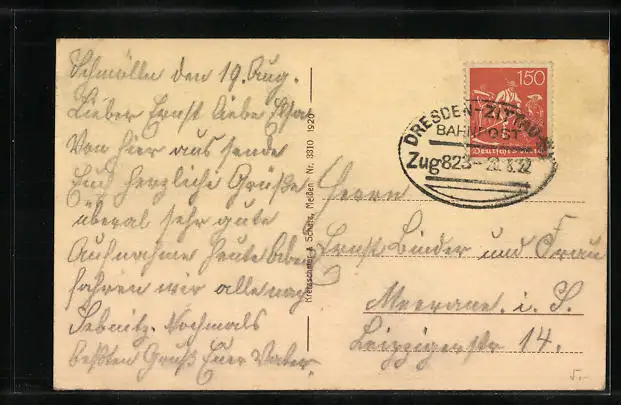 Schmölln den 19. Aug.
Lieber Ernst Liebe Elsa
Von hier aus sende
Euch herzliche Grüße
überal sehr gute
Aufnahme heute Abend
fahren wir alle nach
Sebnitz. Nochmals
besten Gruß Euer Vater.
Meißen Nr. 3310 1920
150
Deutsches Reich
DRESDEN-ZITTAU
BAHNPOST
Zug 823 - 20.8.22
Herrn
Ernst Binder und Frau
Meerane. i. S.
Leipzigerstr 14.
5.-